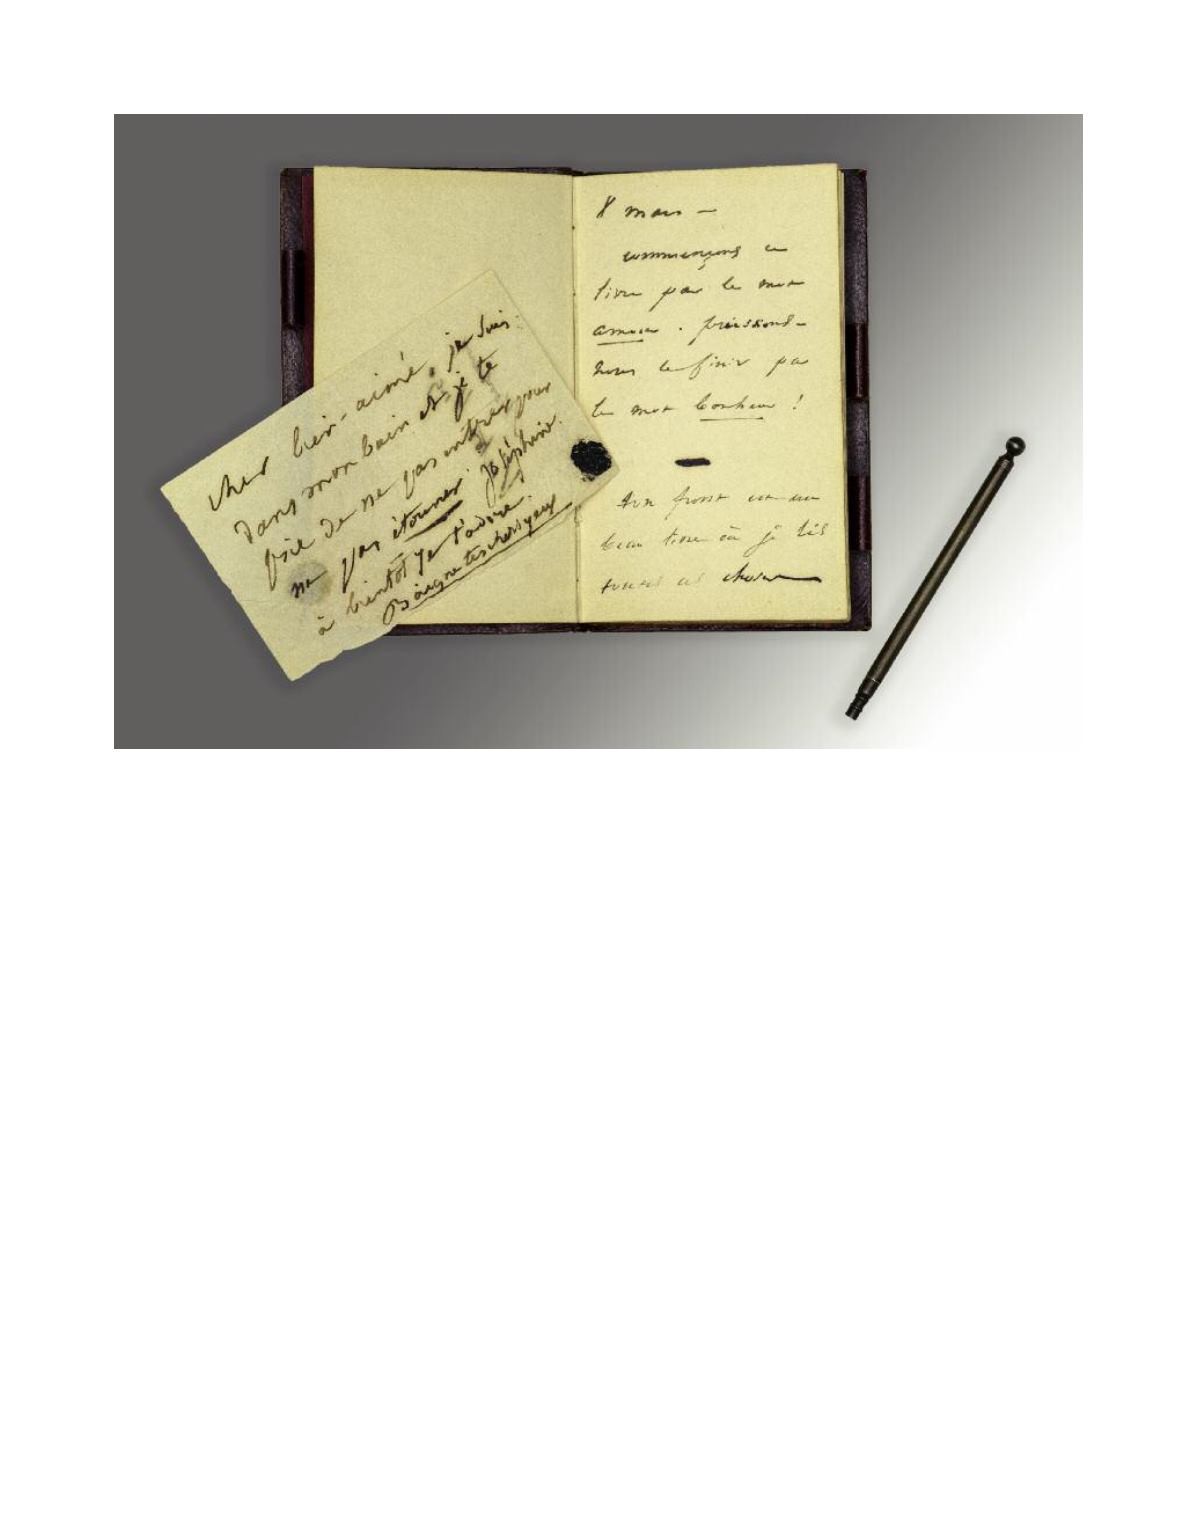 cher bien-aimé, je suis
dans mon bain et je te
prie de ne pas entrer pour
ne pas étonner Joséphine.
à bientôt je t'adore.
Baigne tes chers yeux
8 mars —
commençons ce
livre par le mot
amour.
nous le finir par
le mot bonheur !
Ton front est un
beau livre où je lis
toutes ces choses